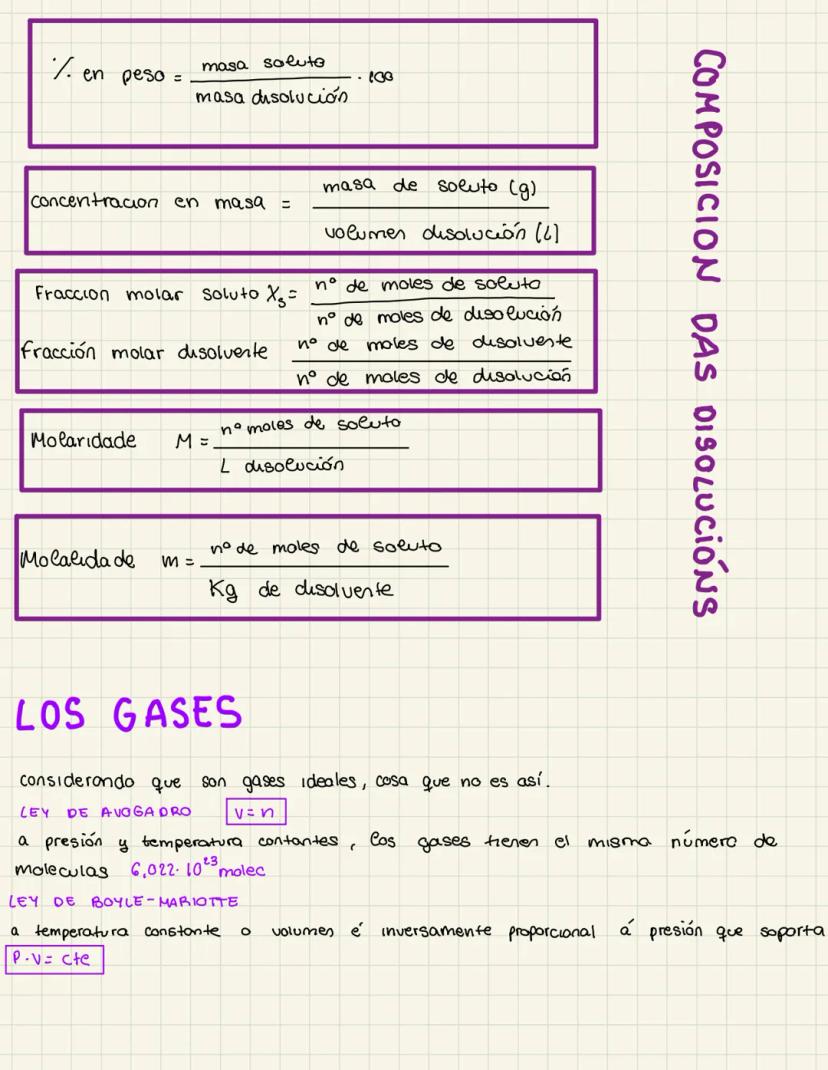 % en peso = masa soluto / masa disolución · 100
concentracion en masa = masa de soluto (g) / volumen disolución (L)
Fraccion molar soluto Xs = nº de moles de soluto / nº de moles de disolución
fracción molar disolvente nº de moles de disolvente / nº de moles de disolución
Molaridade M = nº moles de soluto / L disolución
Molalidade m = nº de moles de soluto / Kg de disolvente
COMPOSICION DAS DISOLUCIÓNS
LOS GASES
considerando que son gases ideales, cosa que no es así.
LEY DE AVOGADRO V = n
a presión y temperatura contantes, los gases tienen el mismo número de
moleculas 6,022·10²³ molec
LEY DE BOYLE-MARIOTTE
a temperatura constante o volumen é inversamente proporcional á presión que soporta
P·V = cte